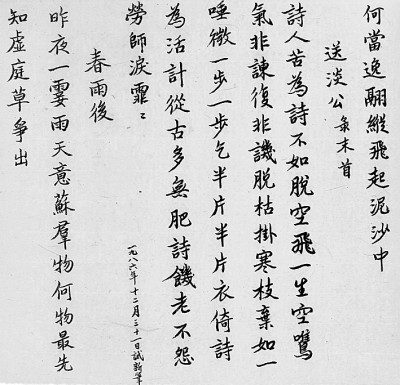 何當逸翮縱飛起泥沙中
送淡公 錄末首
詩人苦為詩不如脫空飛一生空鷕
氣非諫復非譏脫枯掛寒枝棄如一
唾微一步一步乞半片半片衣倚詩
為活計從古多無肥詩饑老不怨
勞師淚霏〻
一九八六年十二月三十一日試新筆
春雨後
昨夜一霎雨天意蘇羣物何物最先
知虛庭草爭出